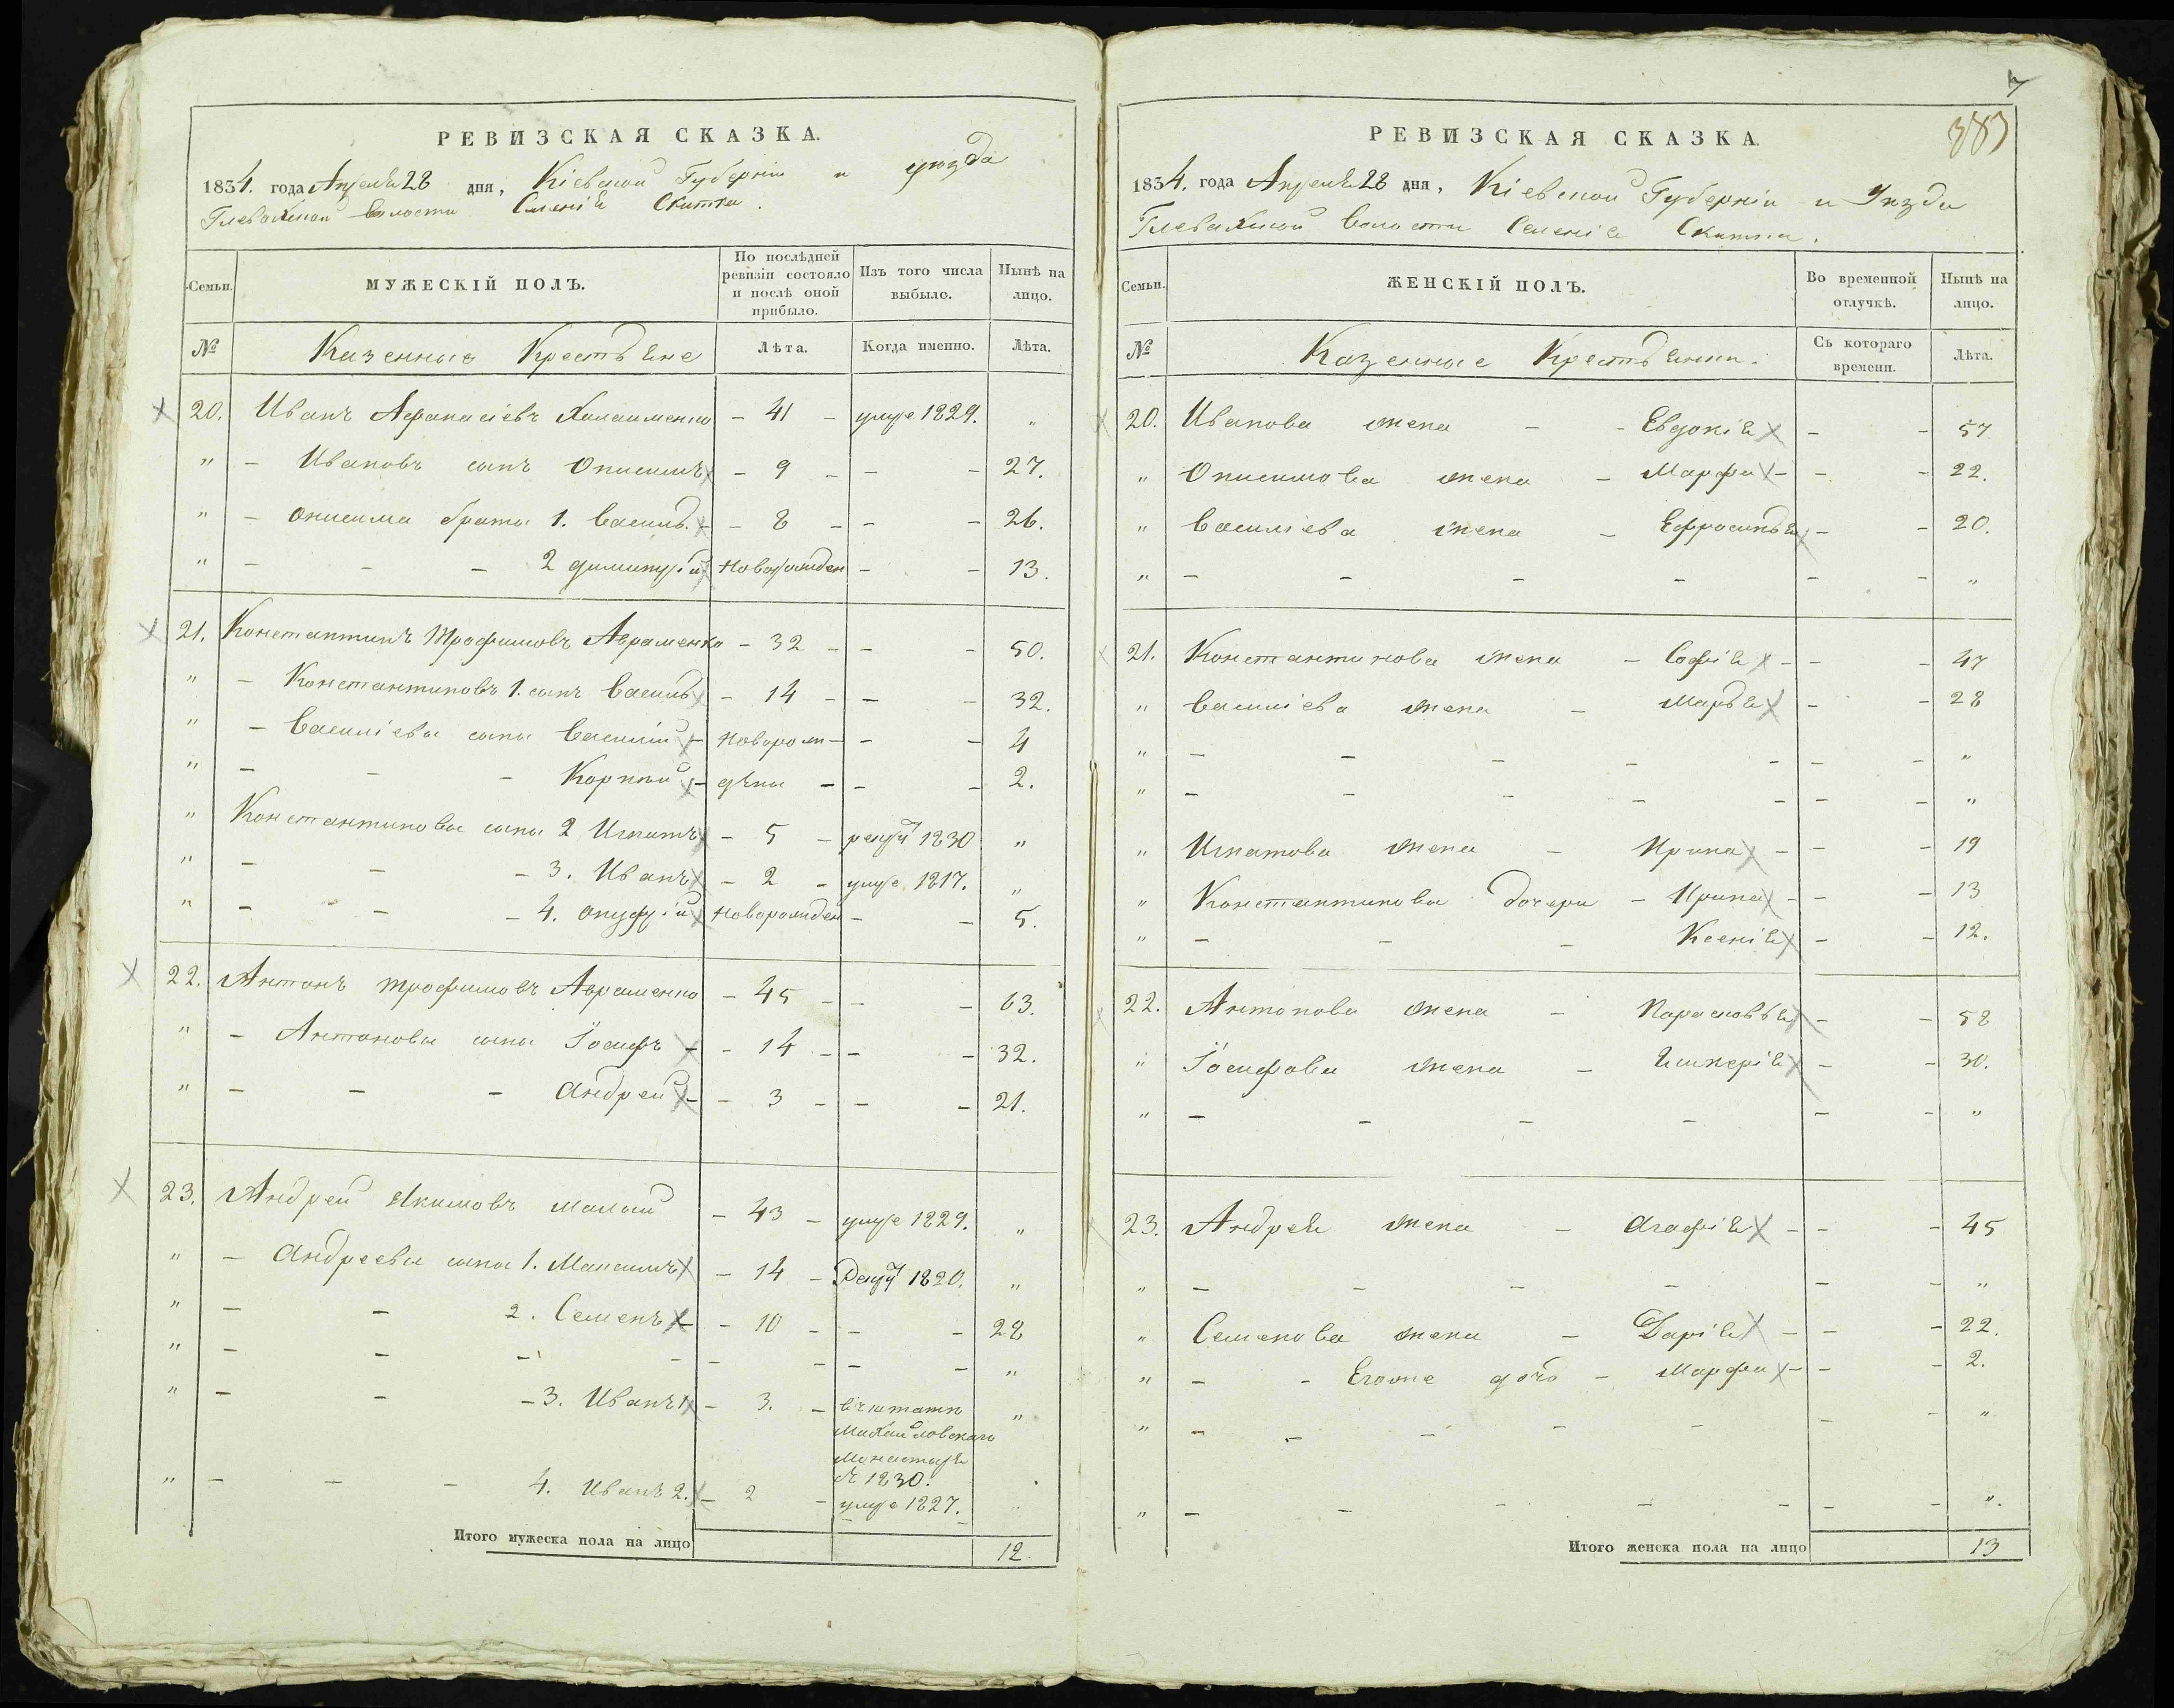 РЕВИЗСКАЯ СКАЗКА.
1834. года Апреля 28 дня, Кіевской Губерніи и уезда
Глевахской волости Селенія Скитка.
Семьи.
МУЖЕСКІЙ ПОЛЪ.
По послѣдней ревизіи состояло и послѣ оной прибыло.
Изъ того числа выбыло.
Нынѣ на лицо.
№
Казенные Крестьяне
Лѣта.
Когда именно.
Лѣта.
20. Иванъ Афанасіевъ - 41 - умре 1829. "
" - Ивановъ сынъ Онисимъ - 9 - - - 27.
" - Онисима брати 1. Василь - 8 - - - 26.
" - - - 2 димитрій Новорожден - - 13.
21. Константинъ Трофимовъ Авраменко - 32 - - - 50.
" - Константиновъ 1. сынъ Василь - 14 - - - 32.
" - Василіевы сыны Василій - Новорож - - - 4
" - - - Корній - дены - - - 2.
" Константиновы сыны 2 Игнатъ - 5 - рекру 1830 "
" - - - 3. Иванъ - 2 - умре 1817. "
" - - - 4. Онуфрій Новорожден - - 5.
22. Антонъ Трофимовъ Авраменко - 45 - - - 63.
" - Антоновы сыны Іосифъ - - 14 - - - 32.
" - - - Андрей - - 3 - - - 21.
23. Андрей Якимовъ Малый - 43 - умре 1829. "
" - Андреевы сыны 1. Максимъ - 14 - Рекру 1820. "
" - - 2. Семенъ - - 10 - - - 28
" - - - - - - - - "
" - - - 3. Иванъ 1 - 3. - въ штатъ "
Михайловскаго
Монастыря
въ 1830.
" - - - 4. Иванъ 2. - 2 - умре 1827.
Итого мужеска пола на лицо 12.
7
383
РЕВИЗСКАЯ СКАЗКА.
1834. года Апреля 28 дня, Кіевской Губерніи и Уезда
Глевахской волости Селенія Скитка.
Семьи.
ЖЕНСКІЙ ПОЛЪ.
Во временной отлучкѣ.
Нынѣ на лицо.
№
Казенные Крестьянки.
Съ котораго времени.
Лѣта.
20. Иванова жена - - Евдокія - - 57
" Онисимова жена - Марфа - - - 22.
" Василіева жена - Ефросинья - - 20.
" - - - - - - "
21. Константинова жена - Софія - - - 47
" Василіева жена - Марья - - 28
" - - - - - - - "
" - - - - - - - "
" Игнатова жена - Ирина - - - 19
" Константинова дочери - Ирина - - - 13
" - - - Ксенія - - 12.
22. Антонова жена - Парасковья - - 58
" Іосифова жена - Гликерія - - 30.
" - - - - - - "
23. Андрея жена - Агафія - - - 45
" - - - - - - "
" Семенова жена - Дарія - - - 22.
" - - Егоже дочь - Марфа - - - 2.
" - - - - - - - "
" - - - - - - - ".
Итого женска пола на лицо 13